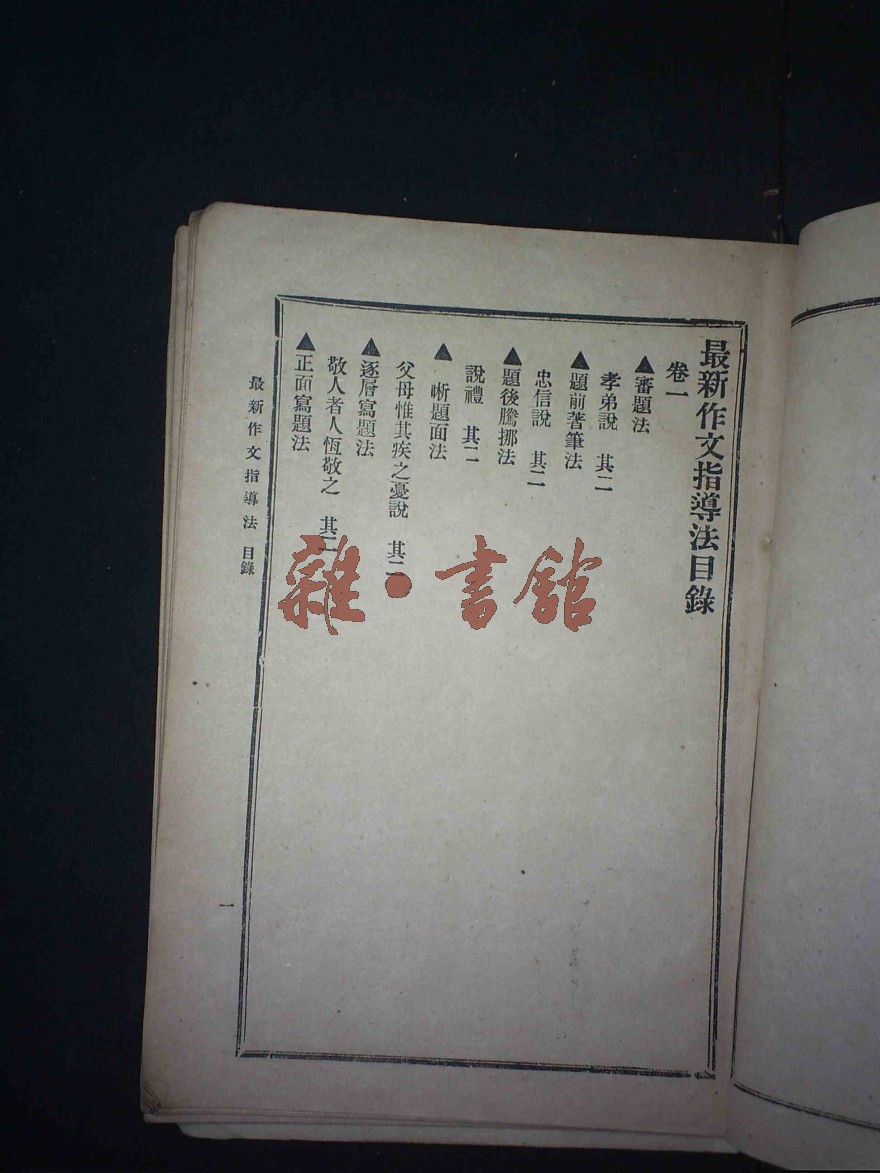 最新作文指導法目錄
卷一
▲審題法
孝弟說　其二
▲題前著筆法
忠信說　其二
▲題後騰挪法
說禮　其二
▲晰題面法
父母惟其疾之憂說　其二
▲逐層寫題法
敬人者人恆敬之　其二
▲正面寫題法
最新作文指導法　目錄
一
雜·書館